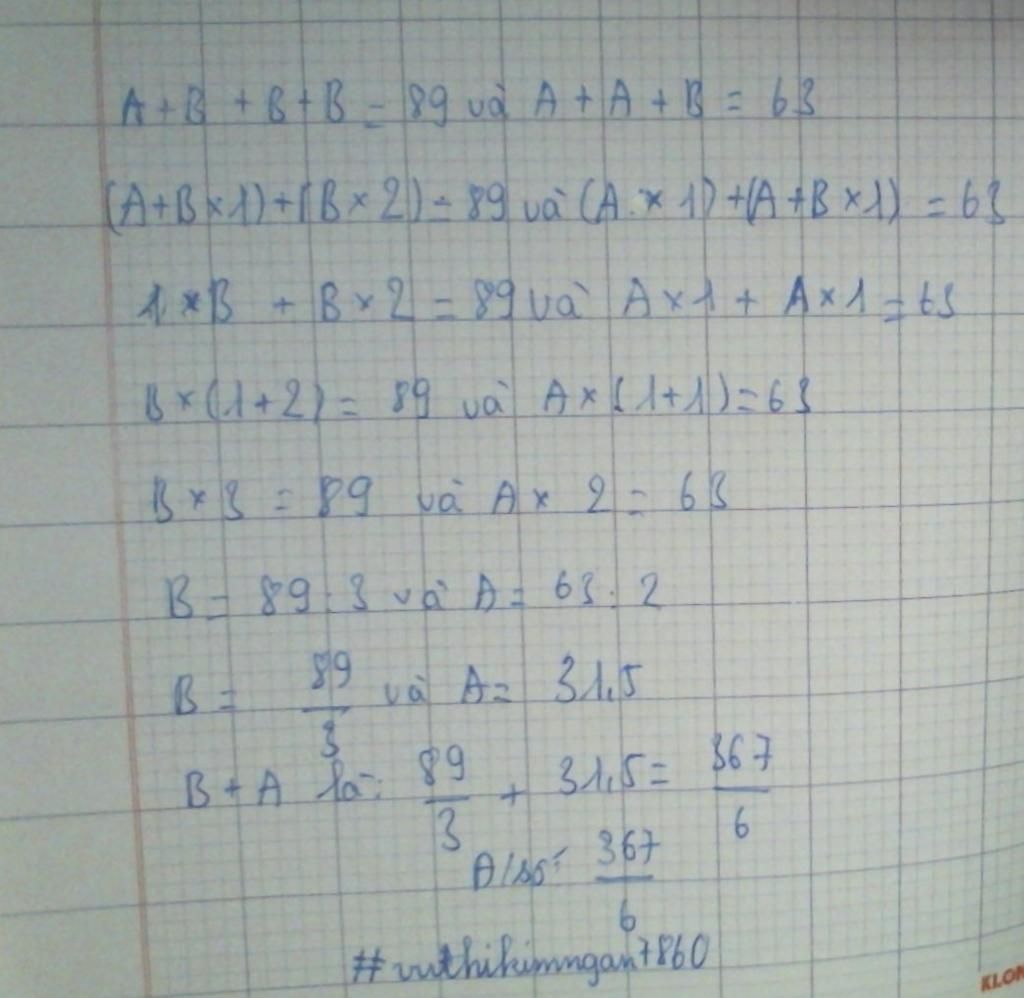 A + B + B + B = 89 và A + A + B = 63
(A + B × 1) + (B × 2) = 89 và (A × 1) + (A + B × 1) = 63
1 × B + B × 2 = 89 và A × 1 + A × 1 = 63
B × (1 + 2) = 89 và A × (1 + 1) = 63
B × 3 = 89 và A × 2 = 63
B = 89 : 3 và A = 63 : 2
B = 89/3 và A = 31,5
B + A là: 89/3 + 31,5 = 367/6
Đ/số: 367/6
#vuthikimngan7860
KLON